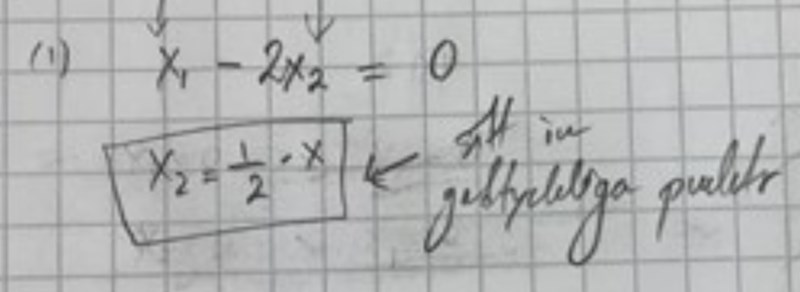 (1) x₁ - 2x₂ = 0
x₂ = 1/2 · x
sätt in
godtyckliga punkter